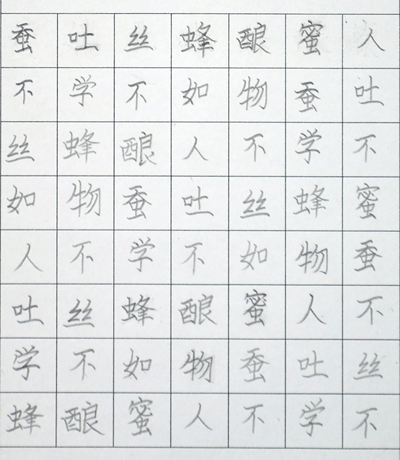 蚕吐丝蜂酿蜜人
不学不如物蚕吐
丝蜂酿人不学不
如物蚕吐丝蜂蜜
人不学不如物蚕
吐丝蜂酿蜜人不
学不如物蚕吐丝
蜂酿蜜人不学不